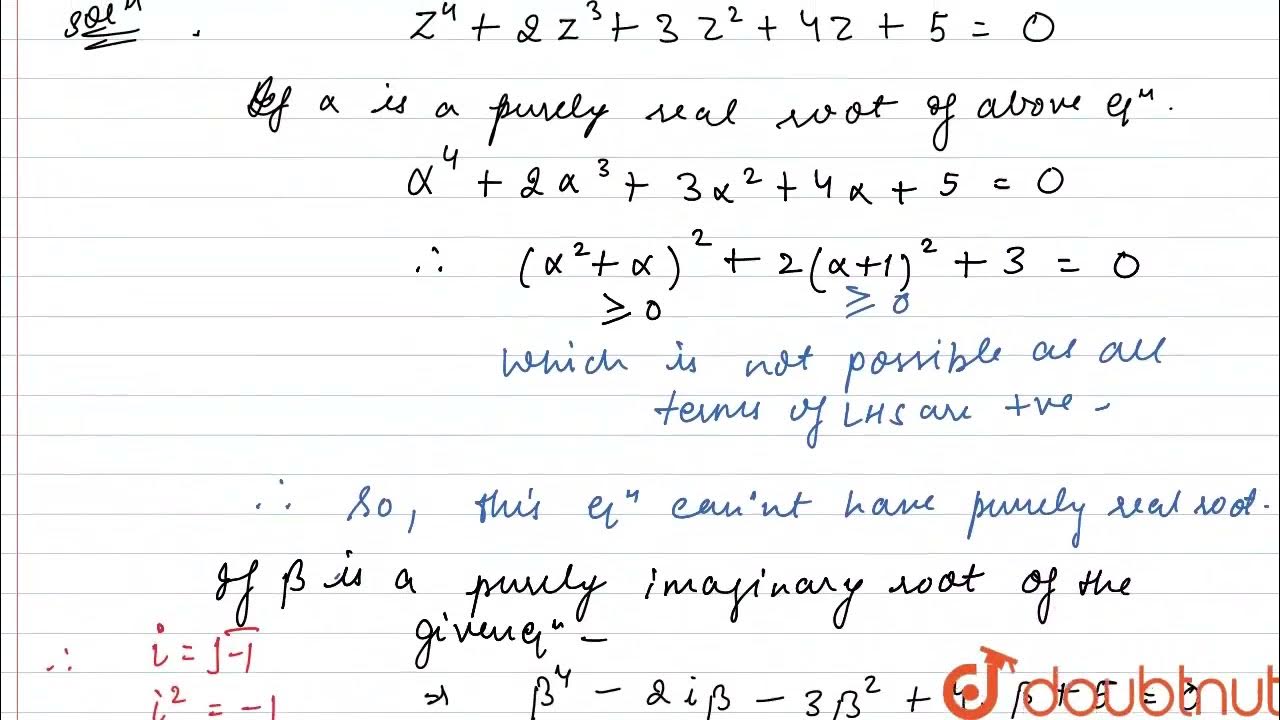 Solⁿ . z⁴ + 2z³ + 3z² + 4z + 5 = 0
If α is a purely real root of above eqⁿ.
α⁴ + 2α³ + 3α² + 4α + 5 = 0
∴ (α² + α)² + 2(α+1)² + 3 = 0
≥ 0 ≥ 0
which is not possible as all
terms of LHS are +ve -
∴ So, this eqⁿ can'nt have purely real root.
If β is a purely imaginary root of the
given eqⁿ -
∴ i = √-1
i² = -1
⇒ β⁴ - 2iβ - 3β² + 4 β + 5 = 0
doubtnut